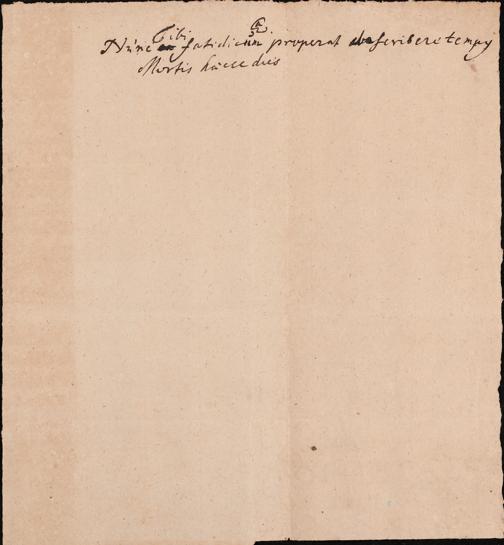 Tibi
Nunc fatidicum properat describere tempus
Mortis haecce dies